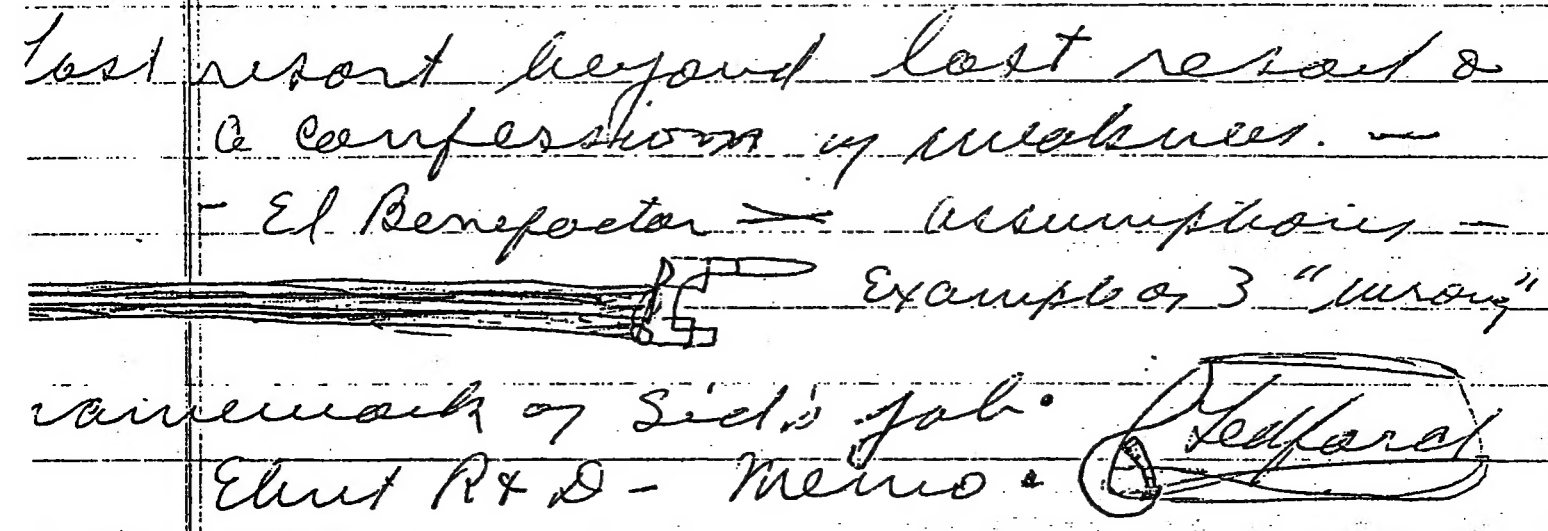 last resort beyond last resort &
a confession of weakness. -
- El Benefactor - assumptions -
Example of 3 "wrong"
ramework of Sid's job.
Elint R & D - Memo. Ledford